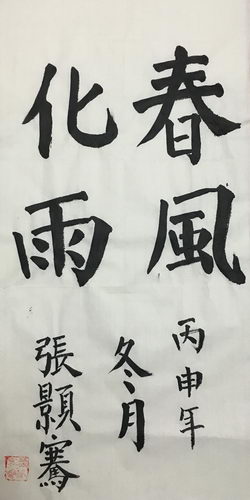 春風
化雨
丙申年
冬月
張顥騫